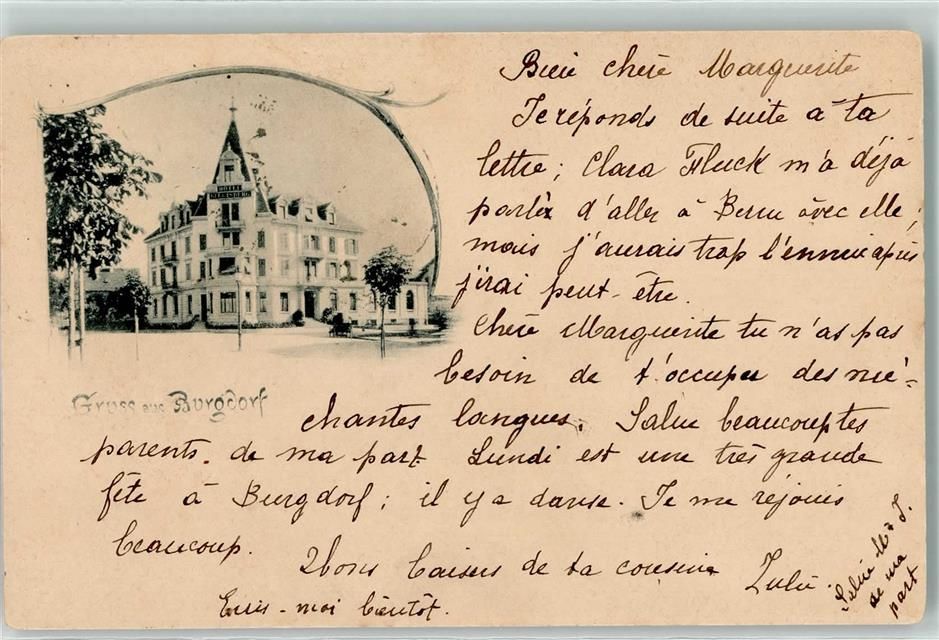 HOTEL
GUGGISBERG
Gruss aus Burgdorf
Bien chère Marguerite
Je réponds de suite à ta
lettre; Clara Fluck m'a déjà
parlèr d'aller à Berne àvec elle,
mais j'aurais trop l'ennui après
j'irai peut-être.
Chère Marguerite tu n'as pas
besoin de t'occuper des mé-
chantes langues. Salue beaucoup tes
parents de ma part Lundi est une très grande
fête à Burgdorf; il y a danse. Je me réjouis
beaucoup.
Bons baisers de ta cousine Lulu
Ecris-moi bientôt.
Salue
de ma
part